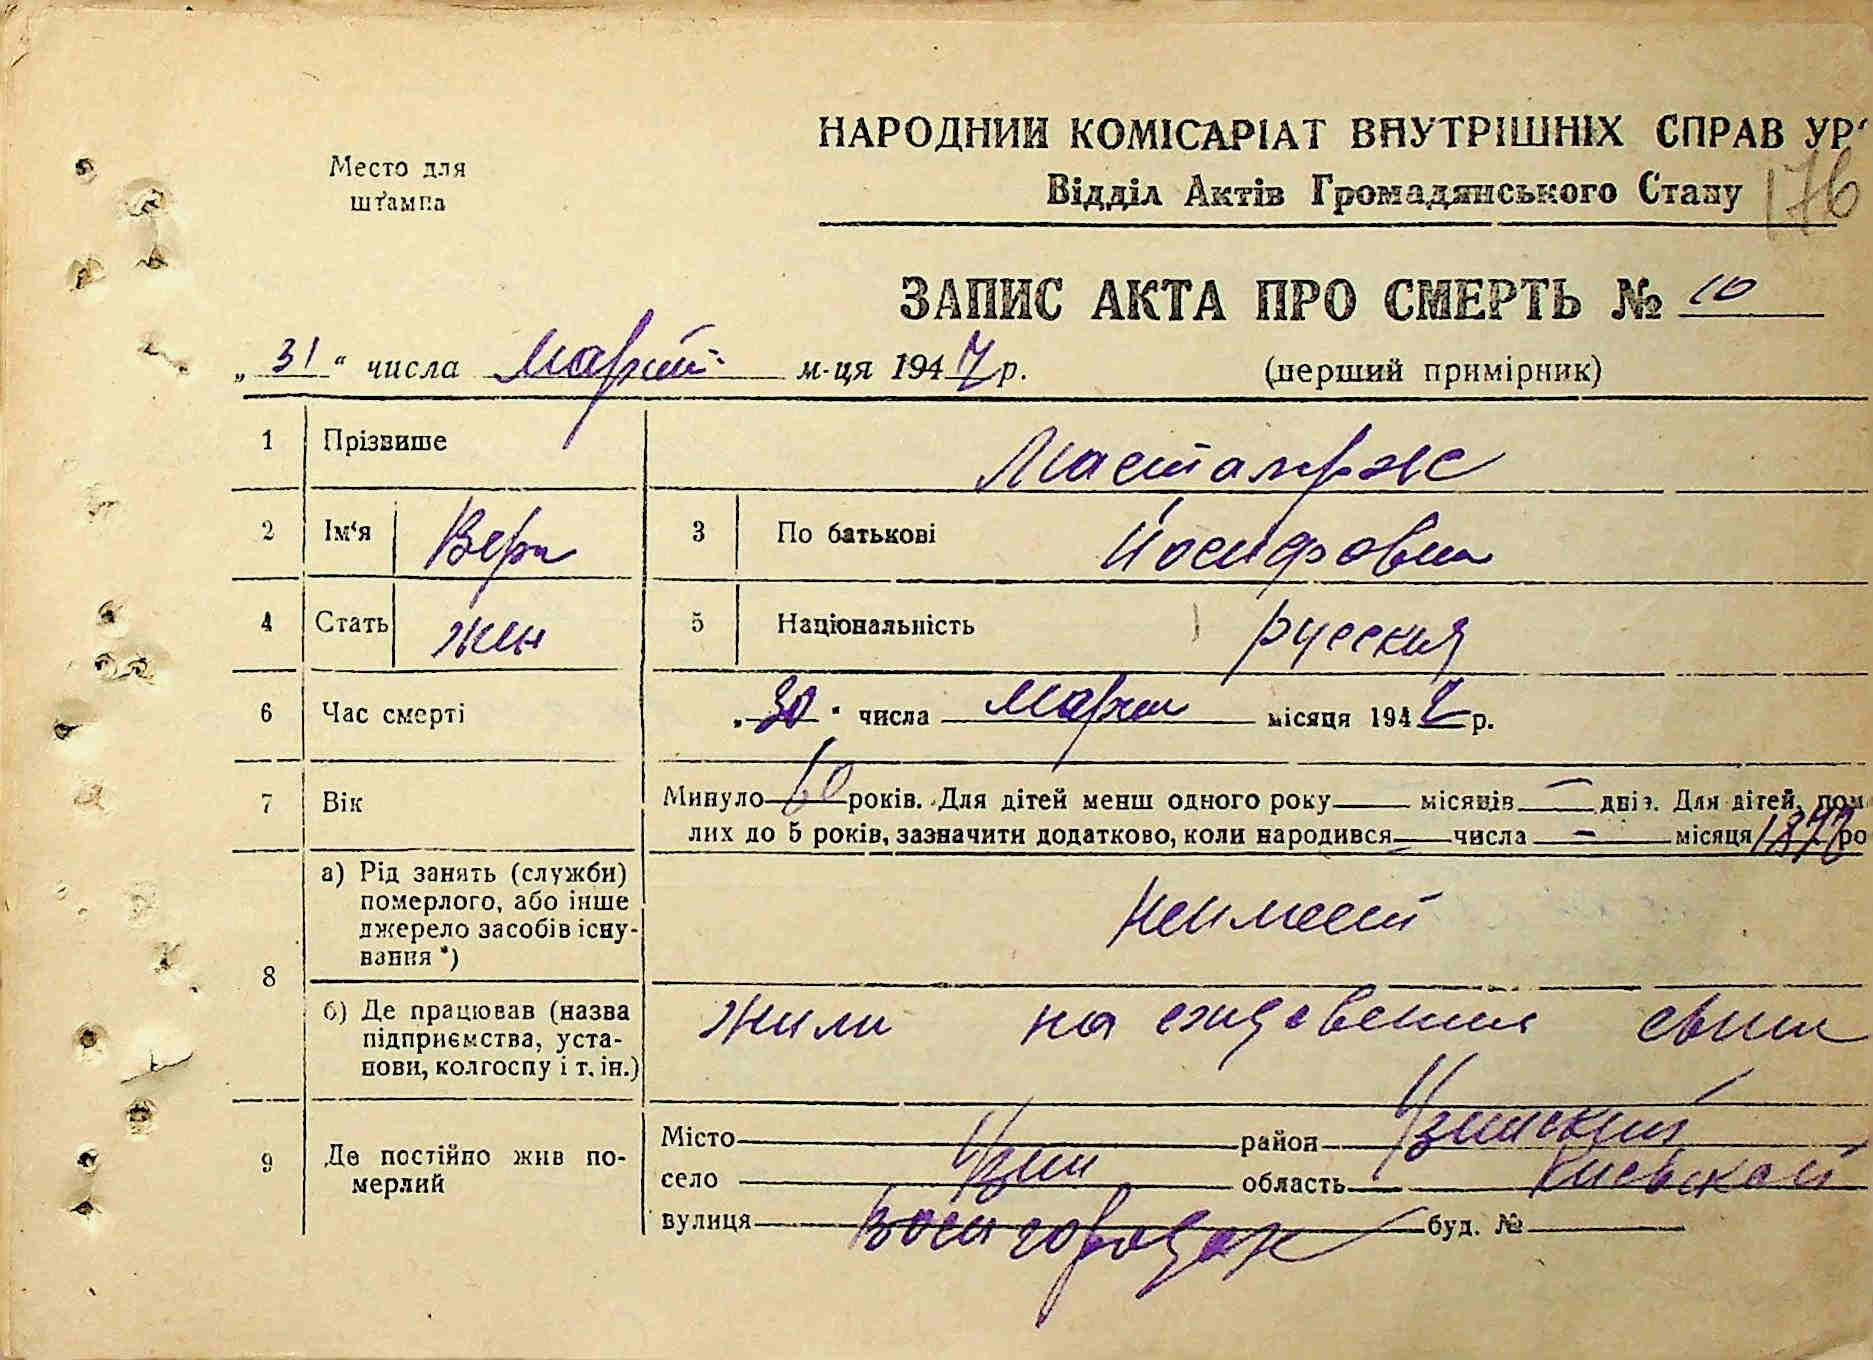 Место для
штампа
НАРОДНИЙ КОМІСАРІАТ ВНУТРІШНІХ СПРАВ УР
Відділ Актів Громадянського Стану
176
ЗАПИС АКТА ПРО СМЕРТЬ № 10
„ 31 “ числа Март м-ця 1947 р. (перший примірник)
1 Прізвише
2 Ім‘я Вера 3 По батькові Иосифовна
4 Стать жен 5 Національність русская
6 Час смерті „ 30 “ числа Марта місяця 1947 р.
7 Вік Минуло 60 років. Для дітей менш одного року — місяців — днів. Для дітей, пом
лих до 5 років, зазначити додатково, коли народився — числа — місяця ро
8 а) Рід занять (служби)
померлого, або інше
джерело засобів існу-
вання *)
Неимеет
б) Де працював (назва
підприємства, уста-
нови, колгоспу і т. ін.)
жила на сына
9 Де постійно жив по-
мерлий
Місто район Узинский
село Узин область Киевской
вулиця Воен городок буд. №